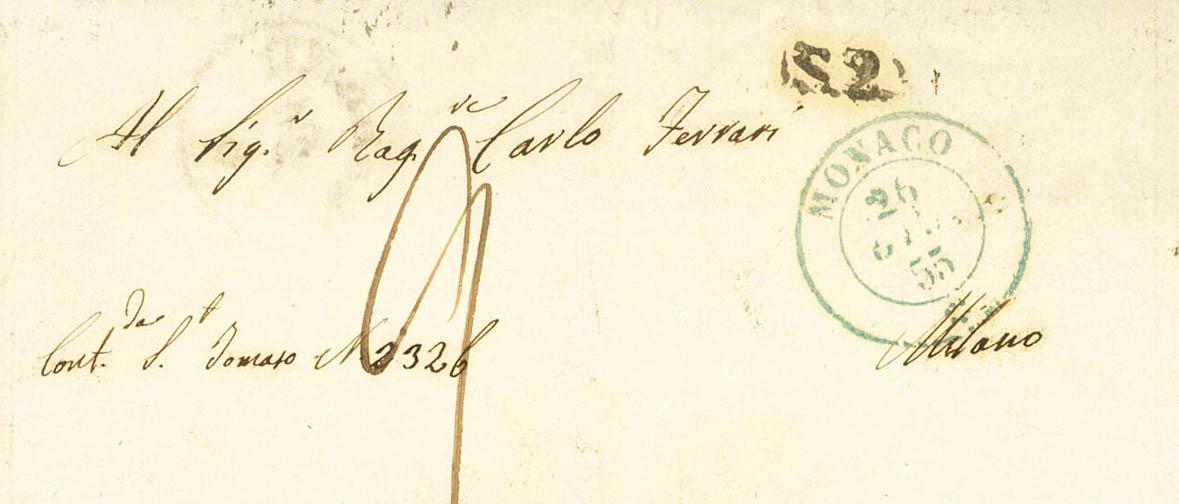 S2
Al Sig.r Rag.re Carlo Ferrari
MONACO
26
55
Cont.da S.t Tomaso N 2326
Milano